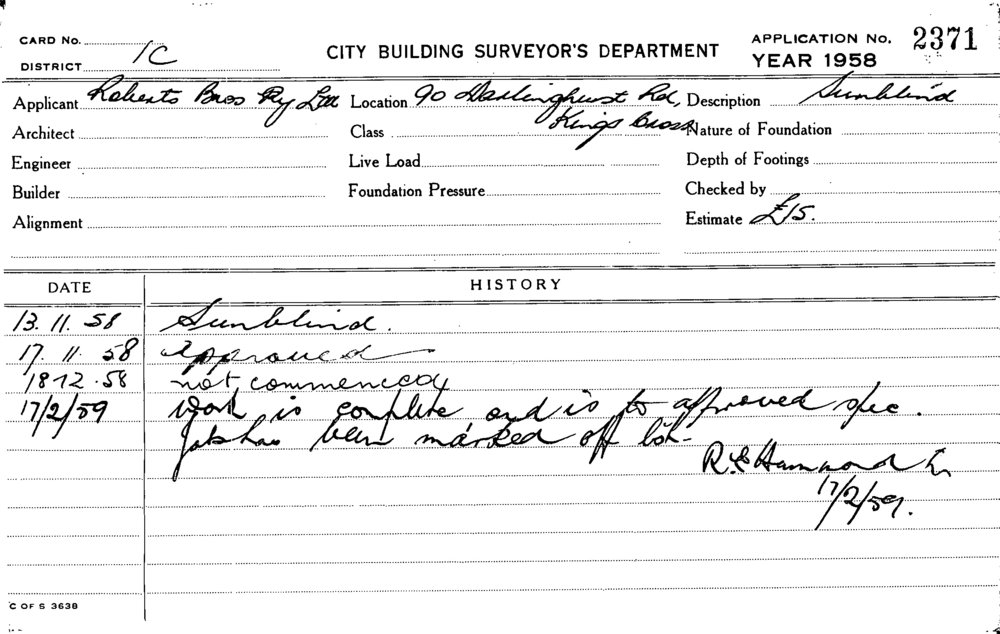 CARD No.
DISTRICT 1C
CITY BUILDING SURVEYOR'S DEPARTMENT
APPLICATION No. 2371
YEAR 1958
Applicant Roberts Bros Pty Ltd Location 90 Darlinghurst Rd, Description Sunblind
Kings Cross
Architect Class Nature of Foundation
Engineer Live Load Depth of Footings
Builder Foundation Pressure Checked by
Alignment Estimate £15.
DATE HISTORY
13. 11. 58 Sunblind.
17. 11. 58 Approved
18 12. 58 not commenced
17/2/59 Work is complete and is to approved spec.
Job has been marked off
R. E Hammond
17/2/59.
C OF S 3638